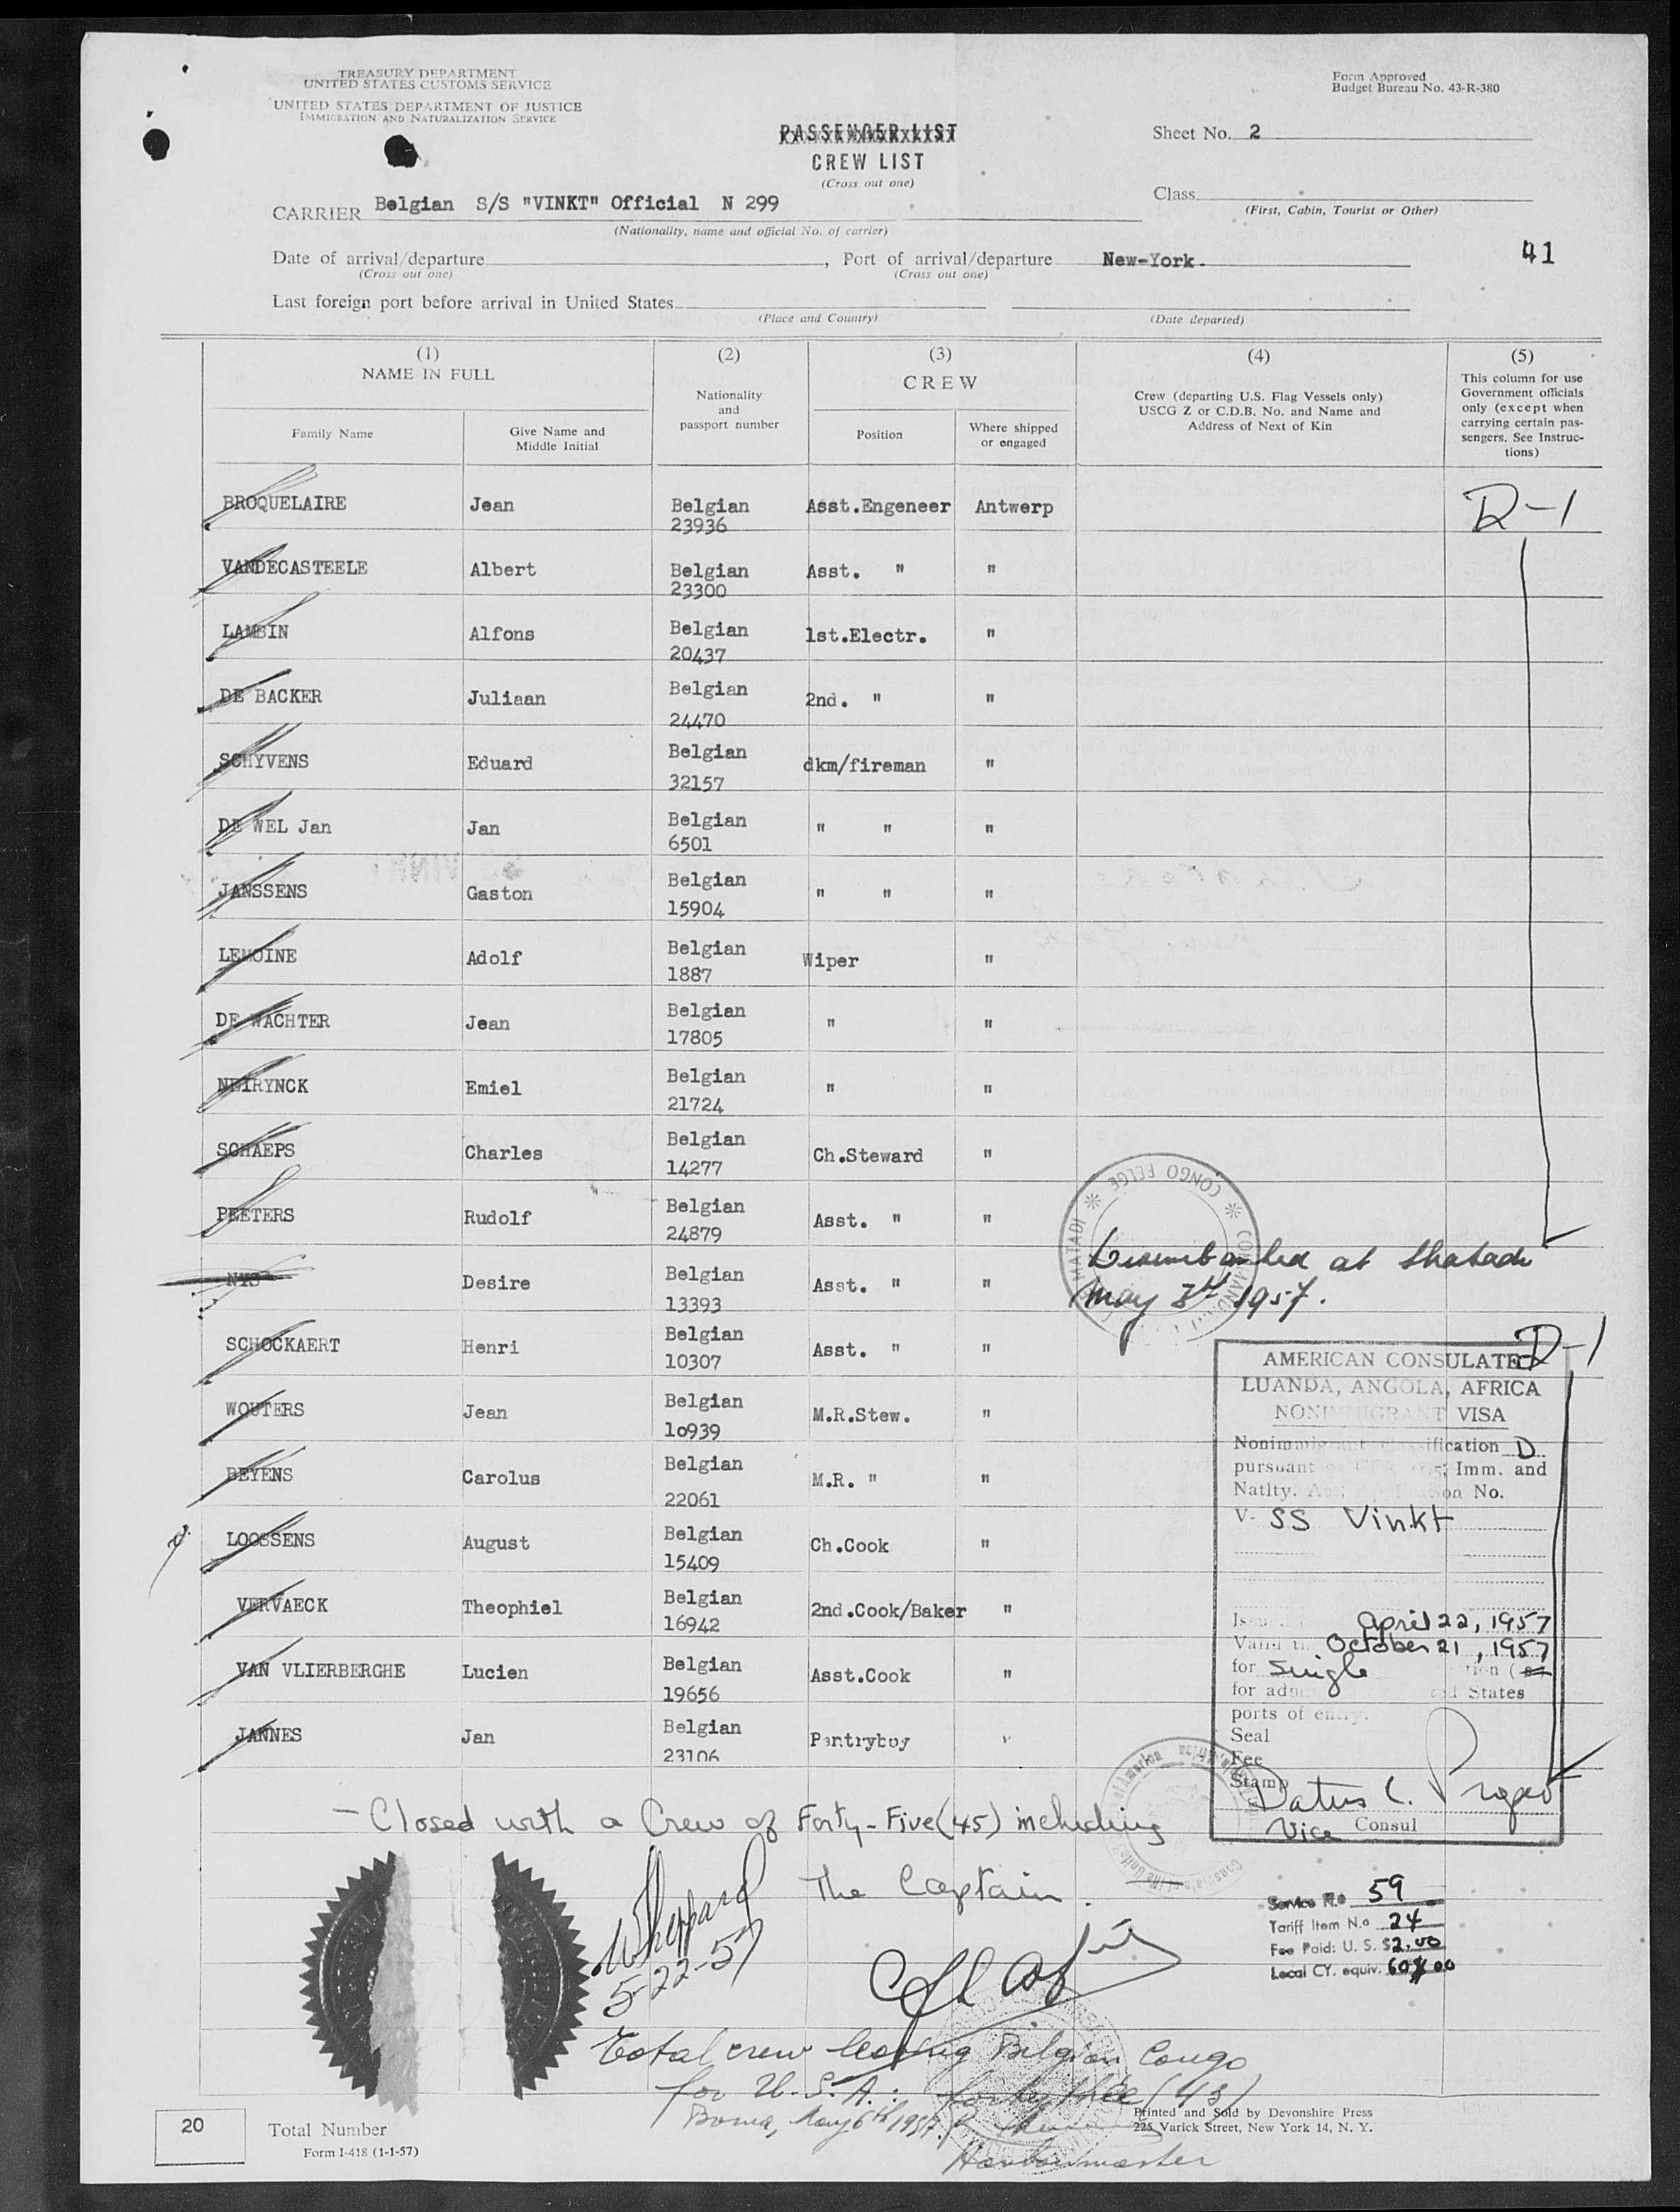 TREASURY DEPARTMENT
UNITED STATES CUSTOMS SERVICE
UNITED STATES DEPARTMENT OF JUSTICE
IMMIGRATION AND NATURALIZATION SERVICE
Form Approved
Budget Bureau No. 43-R-380
PASSENGER LIST
CREW LIST
(Cross out one)
Sheet No. 2
Class
(First, Cabin, Tourist or Other)
CARRIER Belgian S/S "VINKT" Official N 299
(Nationality, name and official No. of carrier)
41
Date of arrival/departure , Port of arrival/departure New-York.
(Cross out one) (Cross out one)
Last foreign port before arrival in United States
(Place and Country) (Date departed)
(1) (2) (3) (4) (5)
NAME IN FULL
Family Name
Give Name and
Middle Initial
Nationality
and
passport number
CREW
Position
Where shipped
or engaged
Crew (departing U.S. Flag Vessels only)
USCG Z or C.D.B. No. and Name and
Address of Next of Kin
This column for use
Government officials
only (except when
carrying certain pas-
sengers. See Instruc-
tions)
BROQUELAIRE Jean Belgian Asst.Engeneer Antwerp D-1
23936
VANDECASTEELE Albert Belgian Asst. " "
23300
LAMBIN Alfons Belgian 1st.Electr. "
20437
DE BACKER Juliaan Belgian 2nd. " "
24470
SCHYVENS Eduard Belgian dkm/fireman "
32157
DE WEL Jan Jan Belgian " " "
6501
JANSSENS Gaston Belgian " " "
15904
LEMOINE Adolf Belgian Wiper "
1887
DE WACHTER Jean Belgian " "
17805
NEIRYNCK Emiel Belgian " "
21724
SCHAEPS Charles Belgian Ch.Steward "
14277
PEETERS Rudolf Belgian Asst. " "
24879
NYS Desire Belgian Asst. " "
13393
at Matadi
May 3d 1957.
CONGO BELGE
MATADI
SCHOCKAERT Henri Belgian Asst. " " D-1
10307
WOUTERS Jean Belgian M.R.Stew. "
1o939
BEYENS Carolus Belgian M.R. " "
22061
LOOSSENS August Belgian Ch.Cook "
15409
VERVAECK Theophiel Belgian 2nd.Cook/Baker "
16942
VAN VLIERBERGHE Lucien Belgian Asst.Cook "
19656
JANNES Jan Belgian Pantryboy "
23106
AMERICAN CONSULATE
LUANDA, ANGOLA, AFRICA
NONIMMIGRANT VISA
Nonimmigrant classification D
pursuant Imm. and
Natlty. No.
V- SS Vinkt
April 22, 1957
October 21, 1957
for Single
for States
ports of entry.
Seal
Fee
Stamp
Datus C. Proper
Vice Consul
- Closed with a Crew of Forty-Five (45) including
The Captain.
WSheppard
5-22-57
Service No 59
Tariff Item N.o 24
Fee Paid: U. S. $2.00
Local CY. equiv. 60$00
Total crew leaving Belgian Congo
for U.S.A.: forty three (43)
Boma, May 6th 1957.
Harbourmaster
20
Total Number
Form I-418 (1-1-57)
Printed and Sold by Devonshire Press
225 Varick Street, New York 14, N. Y.